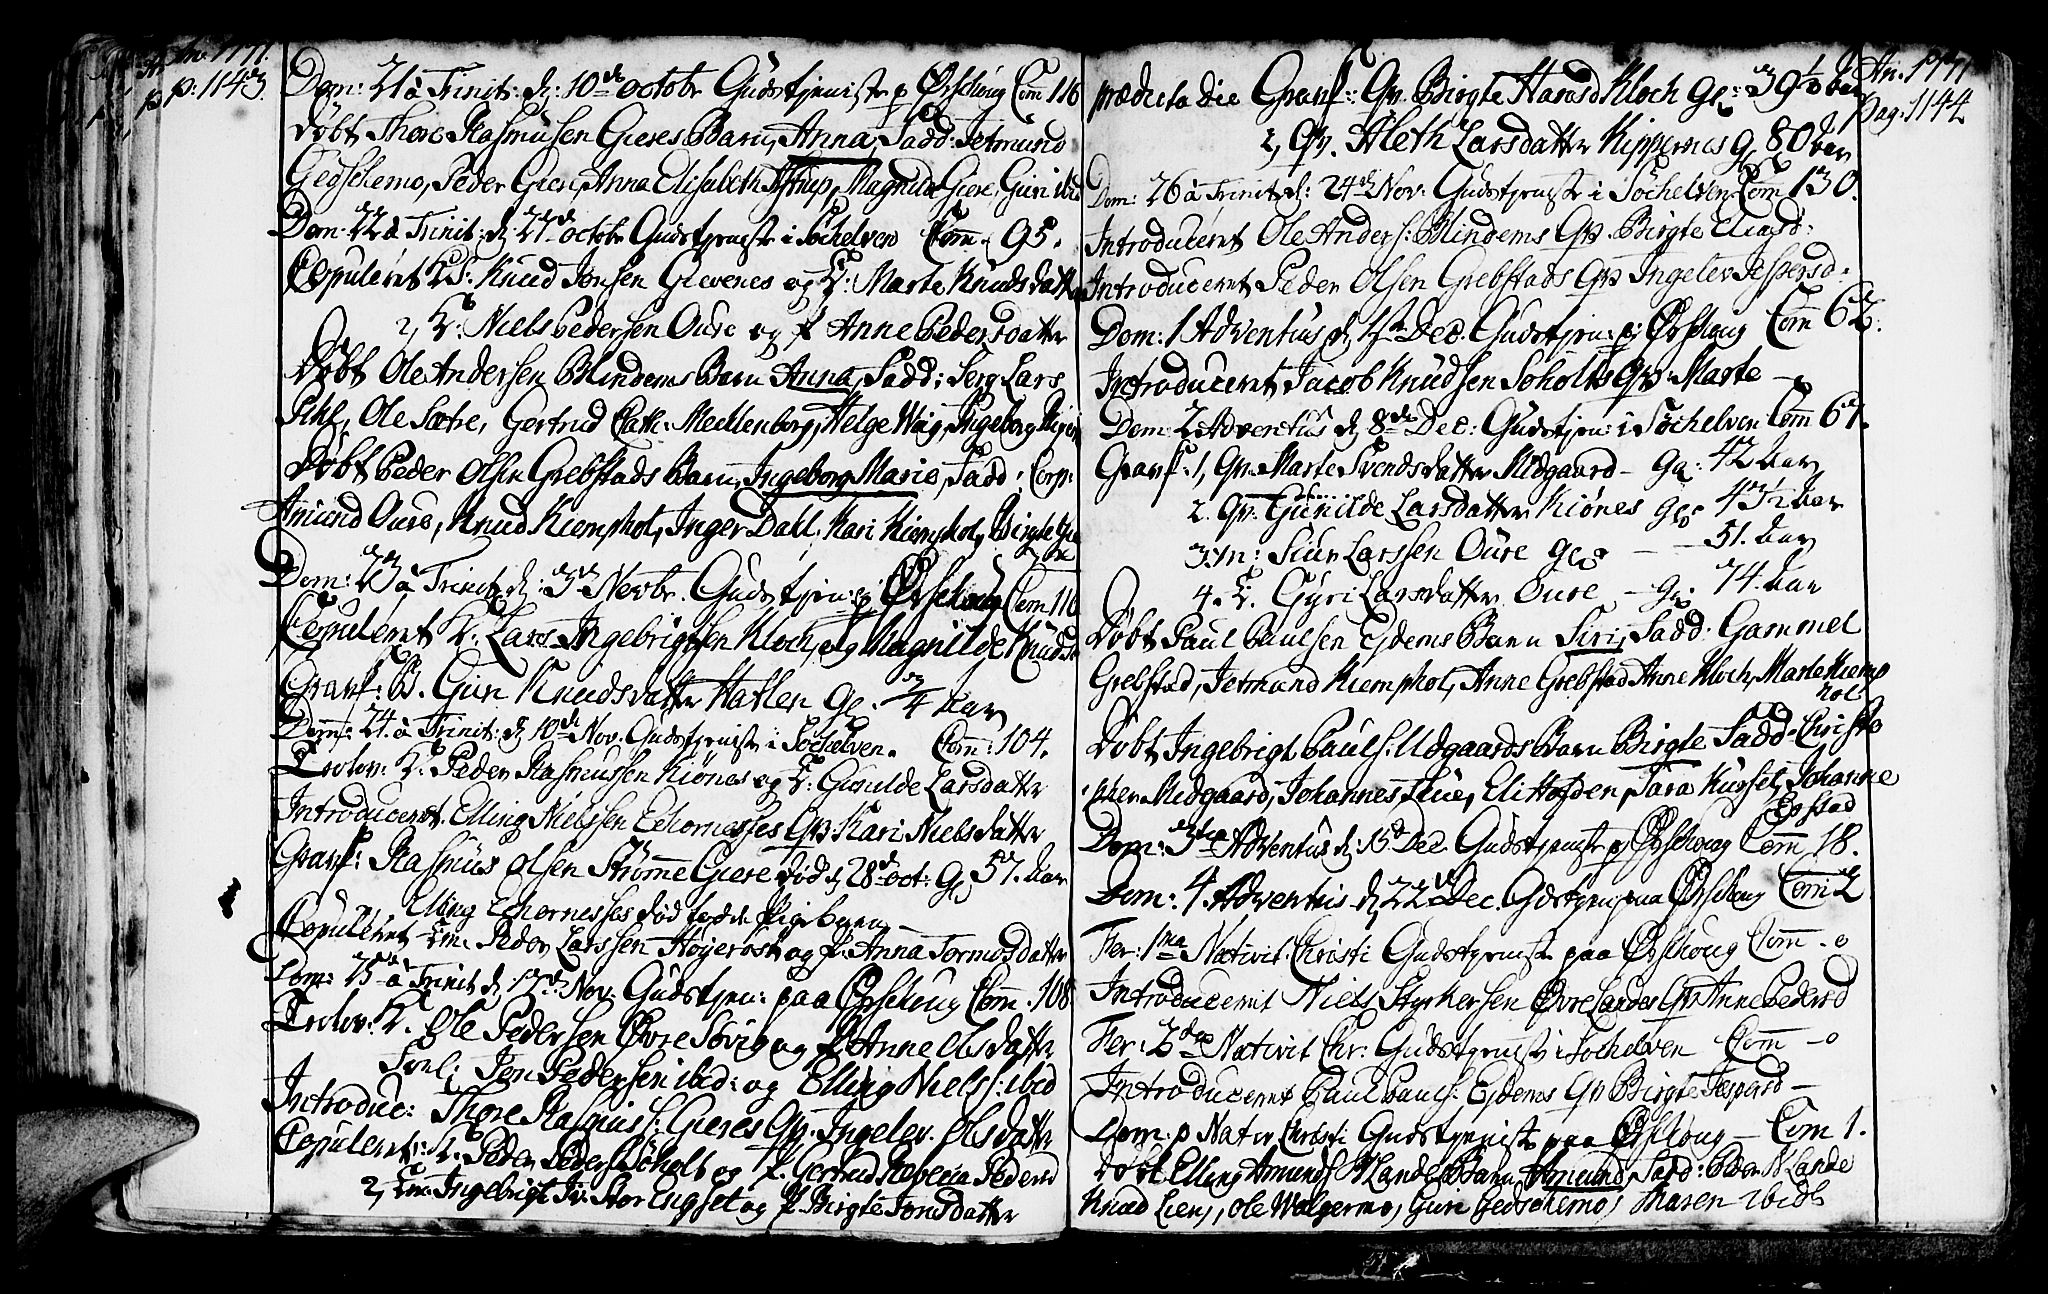 An. 1771.
p. 1143.
Dom: 21 à Trinit: d. 10de octobr Gudstjeniste p Ørschoug Com 116
Døbt Thore Rasmusen Gieres Barn, Anna, Fadd: Jetmund
Gedschemo, Peder Giere, Anna Elisabeth Astrup, Magnilde Giere, Guri ibid
Dom: 22 à Trinit: d. 27de octobr Gudstjenist i Søchelven Comm. 95.
Copuleret K: Knud Jonsen Gievenes og K: Marte Knudsdatter
2, K: Niels Pedersen Oure og P Anne Pedersdatter
Døbt Ole Andersen Blindems Barn Anna, Fadd: Serg Lars
Pihl, Ole Sætre, Gertrud Cath: Mechlenborg, Helge Wiig, Ingeborg
Døbt Peder Olsen Grebstads Barn, Ingeborg Marie, Fadd: Corp:
Amund Oure, Knud Kiemphol, Inger Dahl, Kari Kiemphol, Birgte
Dom: 23 à Trinit: d: 3de Novbr. Gudstjen: p Ørschoug Com 116
Copuleret K. Lars Ingebrigtsen Kloch og Magnilde Knudsd
Grafs: B. Guri Knudsdatter Hatlen gl. 3/4 aar
Dom: 24. à Trinit: d 10de Nov. Gudstjenist i Søchelven. Com: 104.
Trolov: K. Peder Rasmussen Kiønes og K: Gunilde Larsdatter
Introduceret. Elling Nielssen Echornesses Qv Kari Nielsdatter
Grafs: Rasmus Olsen Strømme Giere død d 28de oct: gl 57. aar
Elling Echornesses død fødde Pigebarn
Copuleret Em. Peder Larssen Høgeros og P. Anna Tormodsdatter
Dom: 25 à Trinit d. 17de Nov. Gudstjen: paa Ørschoug Com. 108
Trolov: K. Ole Pedersen Øvre Søvig og P Anne Olsdatter
Forl: Jon Pedersen ibid: og Elling Niels: ibid
Introduc: Thore Rasmuss: Gieres Qv. Ingelev Olsdatter
Copuleret: K. Peder Peders Søholt og P. Gertrud Rebecca Pedersd
2, Em: Ingebrigt Iv: Stor Engset og P Birgte Jonsdatter
An. 1771
Pag: 1144
prædicta die Grafs: Qv. Birgte Haraldsd Kloch gl: 39½ aar
2, Qv. Aleth Larsdatter Kippernes gl 80 aar
Dom: 26 à Trinit d: 24de Nov. Gudstjenist i Søchelven Com 130.
Introduceret Ole Anders: Blindems Qv. Birgte Eliasd:
Introduceret Peder Olsen Grebstads Qv Ingelev Jespersd.
Dom: 1 Adventus d 1ste Dec. Gudstjen: p: Ørschoug Com 62.
Introduceret Jacob Knudsen Søholts Qv: Marte
Dom: 2 Adventus d 8de Dec: Gudstjen: i Søchelven Com 67.
Grafs: 1, Qv. Marte Svendsdatter Midgaard - gl: 42 aar
2. Qv. Gunilde Larsdatter Kiønes gl: 43½ aar
3. M: Siur Larssen Oure gl: 51. aar
4. K. Gyri Larsdatter Oure - gl: 74. aar
Døbt Paul Paulsen Ejdems Barn Siri, Fadd: Gammel
Grebstad, Jetmund Kiemphol, Anne Grebstad Anne Kloch, Marte Kiemp
hol
Døbt Ingebrigt Pauls: Udgaards Barn Birgte Fadd: Christo
pher Midgaard, Johannes Liue, Eli Hofden, Sara Kurset, Johanne
Egstad
Dom: 3tia Adventus d: 15de Dec. Gudstjenist p Ørschoug Com 18.
Dom: 4 Adventus d 22de Dec. Gdstjen paa Ørschoug Com 2
Fer: 1ma Nativit: Christi Gudstjenist paa Ørschoug Com - o
Introduceret Niels Styrkersen Øvrelandes Qv Anne Pedersd
Fer: 2da Nativit Chr: Gudstjenist i Søchelven Com - o
Introduceret Paul Pauls: Ejdems Qv Birgte Jespersd -
Dom. p Nativ Christi Gudstjenist paa Ørschoug - Com 1.
Døbt Elling Amunds N Landes Barn Amund, Fadd: Peder N Lande
Knud Lien, Ole Walgermo, Guri Gedschemo, Maren ibid